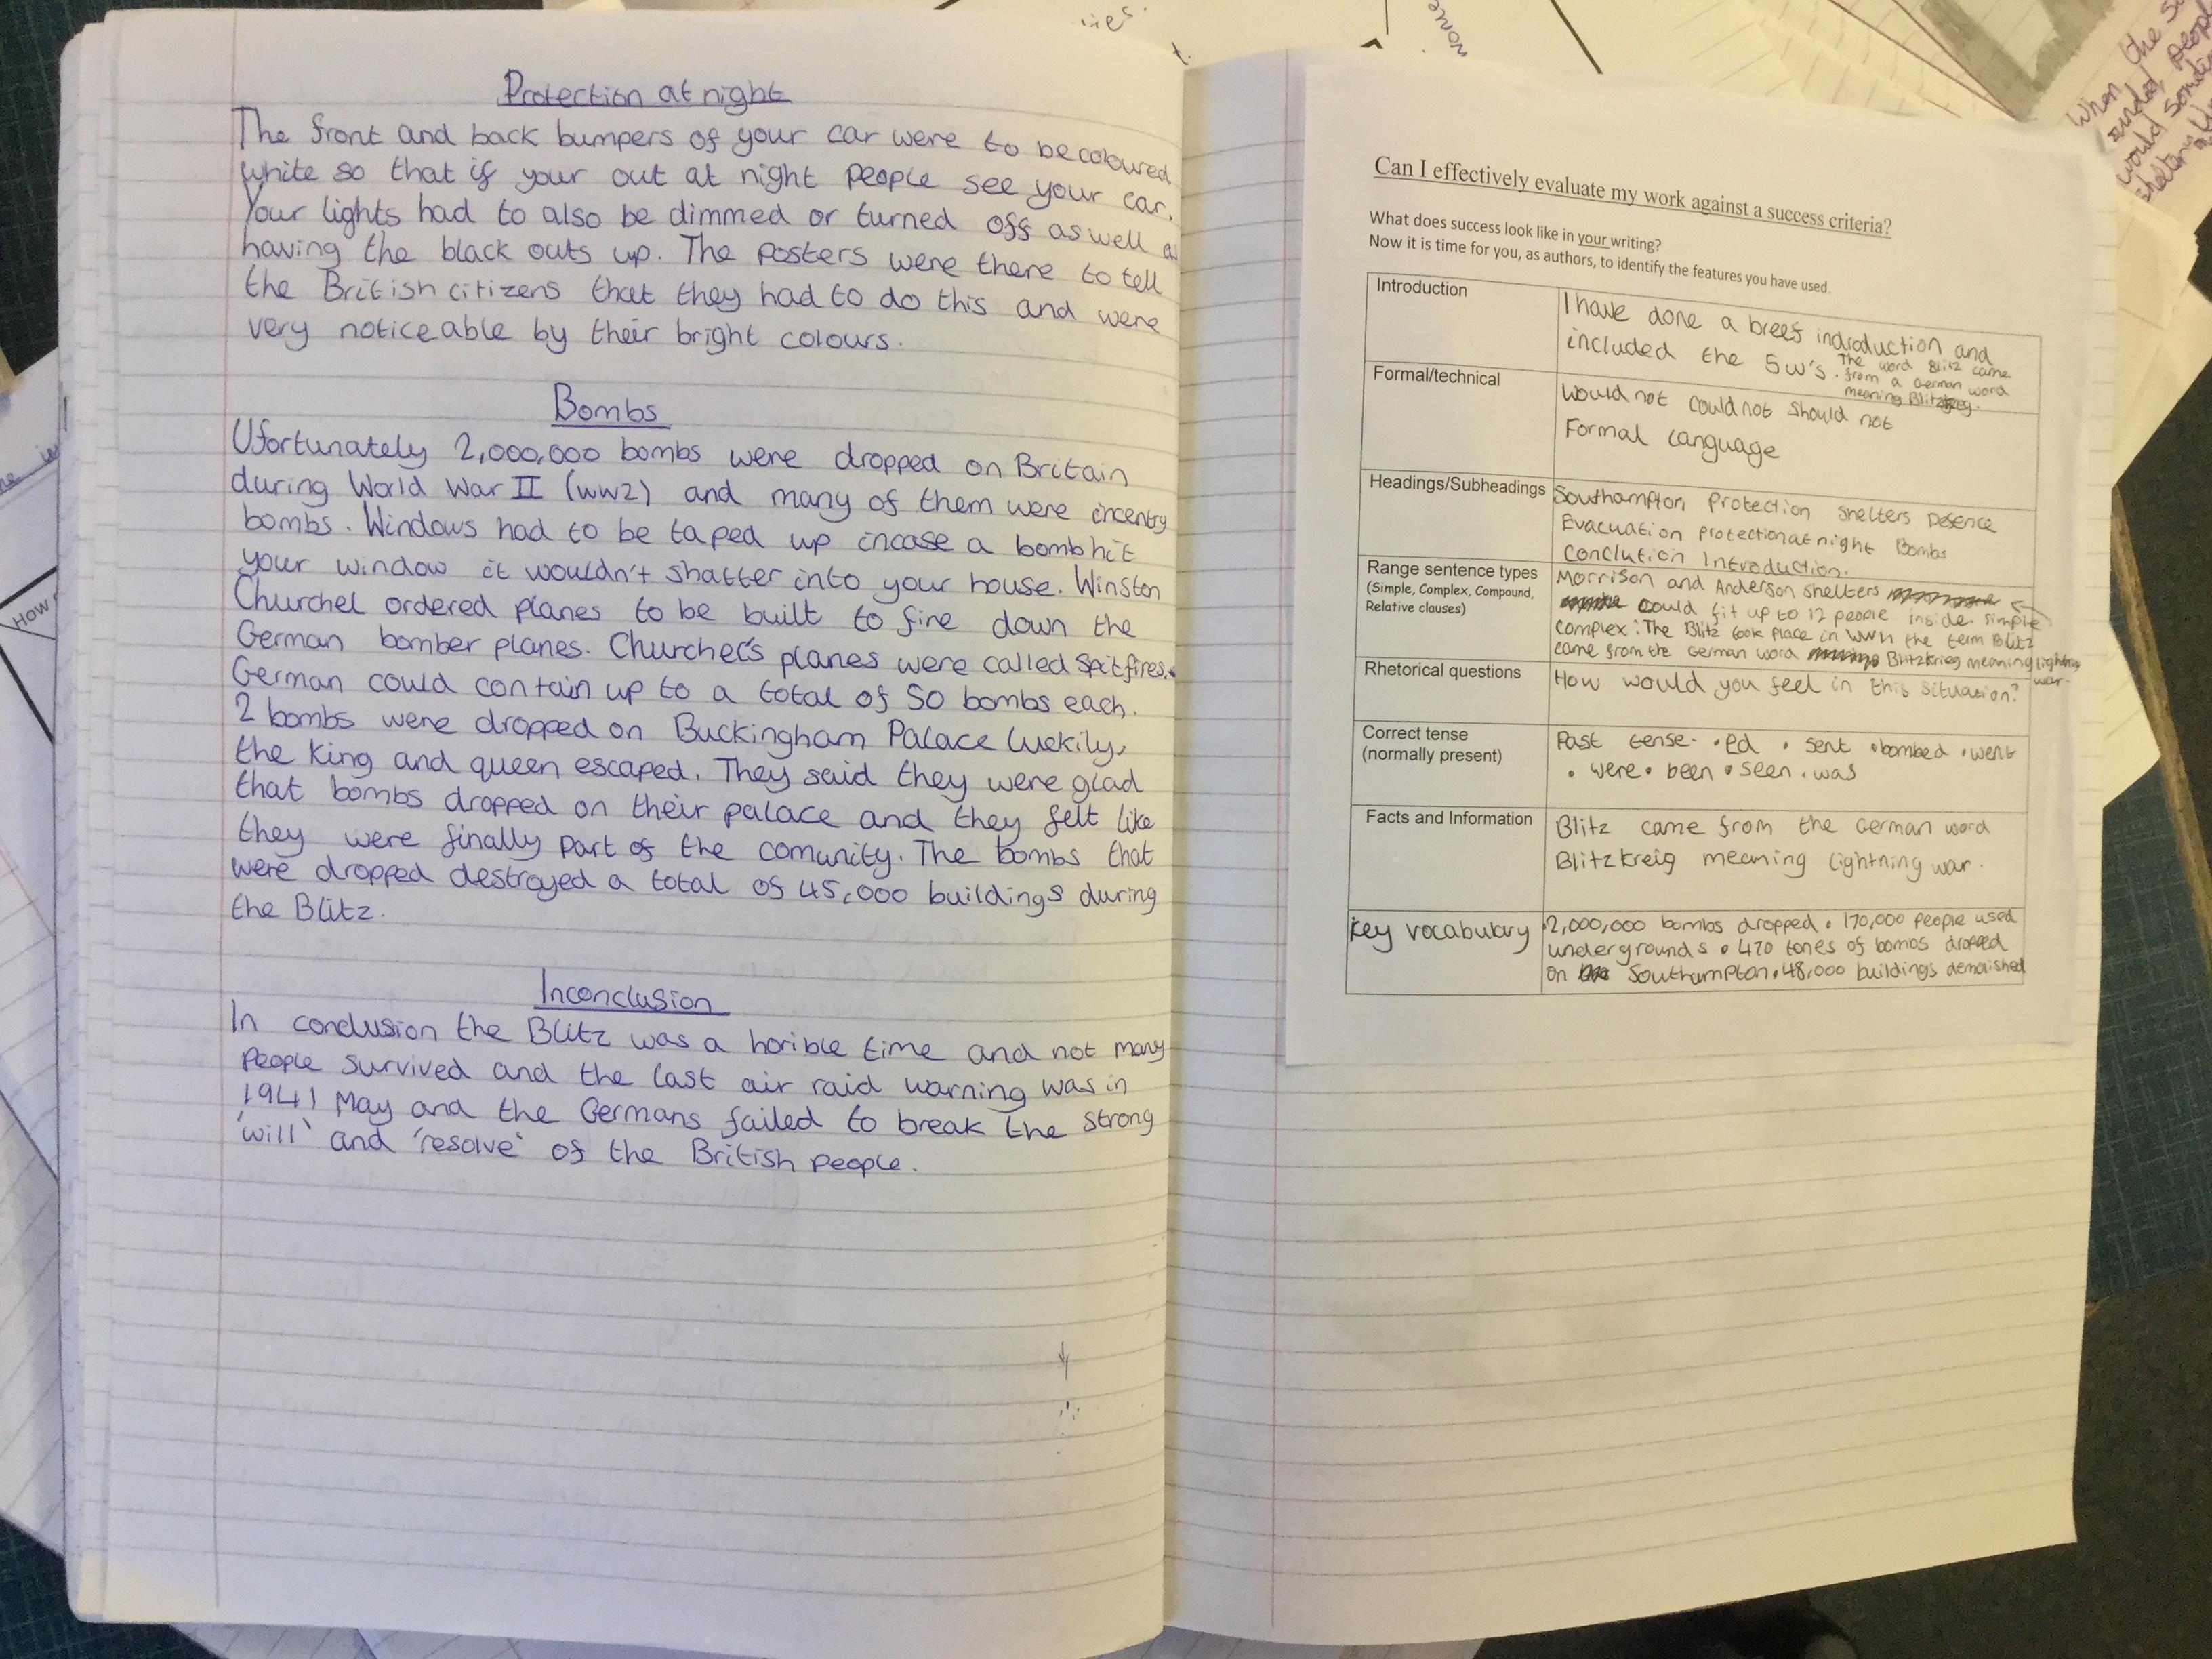 Protection at night
The front and back bumpers of your car were to be coloured
white so that if your out at night people see your car.
Your lights had to also be dimmed or turned off as well as
having the black outs up. The posters were there to tell
the British citizens that they had to do this and were
very noticeable by their bright colours.
Bombs
Ufortunately 2,000,000 bombs were dropped on Britain
during World War II (WW2) and many of them were incentry
bombs. Windows had to be taped up incase a bomb hit
your window it wouldn't shatter into your house. Winston
Churchel ordered planes to be built to fire down the
German bomber planes. Churchel's planes were called Spitfires.
German could contain up to a total of 50 bombs each.
2 bombs were dropped on Buckingham Palace luckily,
the King and queen escaped. They said they were glad
that bombs dropped on their palace and they felt like
they were finally part of the comunity. The bombs that
were dropped destroyed a total of 45,000 buildings during
the Blitz.
Inconclusion
In conclusion the Blitz was a horible time and not many
people survived and the last air raid warning was in
1941 May and the Germans failed to break the strong
'will' and 'resolve' of the British people.
Can I effectively evaluate my work against a success criteria?
What does success look like in your writing?
Now it is time for you, as authors, to identify the features you have used.
Introduction
I have done a breef indroduction and
included the 5 w's. The word Blitz came
from a German word
meaning
Formal/technical
Would not could not should not
Formal language
Headings/Subheadings
Southampton Protection Shelters Defence
Evacuation protection at night Bombs
Conclution Introduction.
Range sentence types
(Simple, Complex, Compound,
Relative clauses)
Morrison and Anderson shelters
could fit up to 12 people inside. simple
complex: The Blitz took place in WWII the term Blitz
came from the German word Blitzkrieg meaning lightning
war.
Rhetorical questions
How would you feel in this situation?
Correct tense
(normally present)
Past tense • ed • sent • bombed • went
• were • been • seen • was
Facts and Information
Blitz came from the German word
Blitzkreig meaning lightning war.
key vocabulary
•2,000,000 bombs dropped • 170,000 people used
undergrounds • 470 tones of bombs dropped
on Southampton • 48,000 buildings demolished
When the
would
How